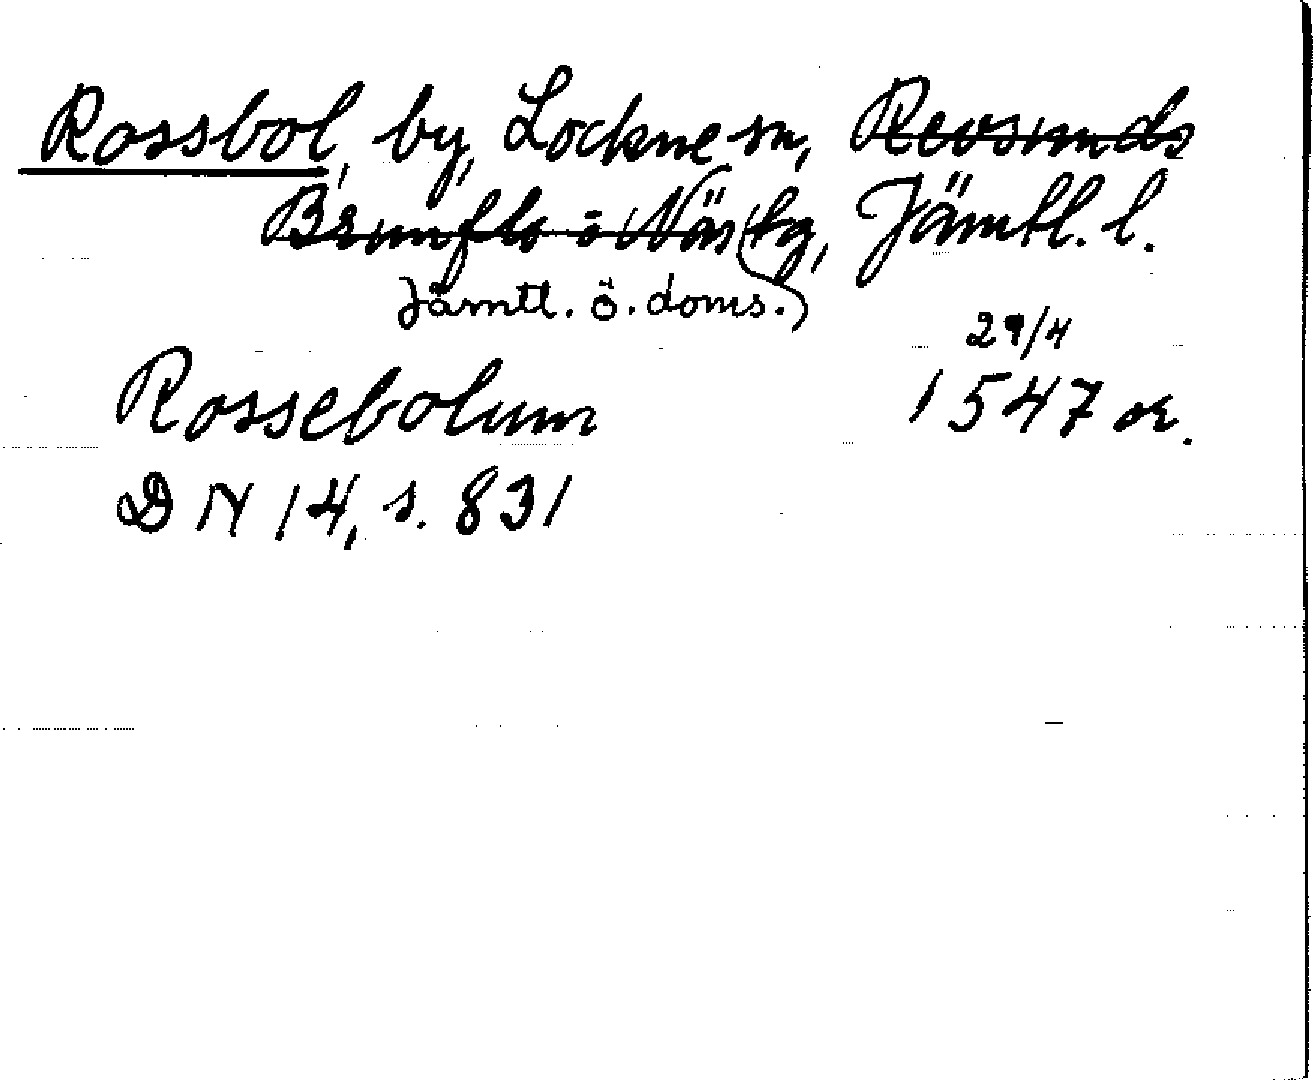 Rossbol, by, Lockne sn, Revsunds
Brunflo o Näs tg, Jämtl. l.
Jämtl. ö. doms.
29/4
Rossebolum 1547 or.
DN 14, s. 831